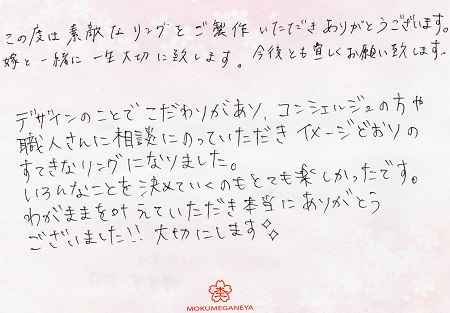 この度は素敵なリングをご製作いただきありがとうございます。
嫁と一緒に一生大切に致します。今後とも宜しくお願い致します。
デザインのことでこだわりがあり、コンシェルジュの方や
職人さんに相談にのっていただきイメージどおりの
すてきなリングになりました。
いろんなことを決めていくのもとても楽しかったです。
わがままを叶えていただき本当にありがとう
ございました!! 大切にします
MOKUMEGANEYA